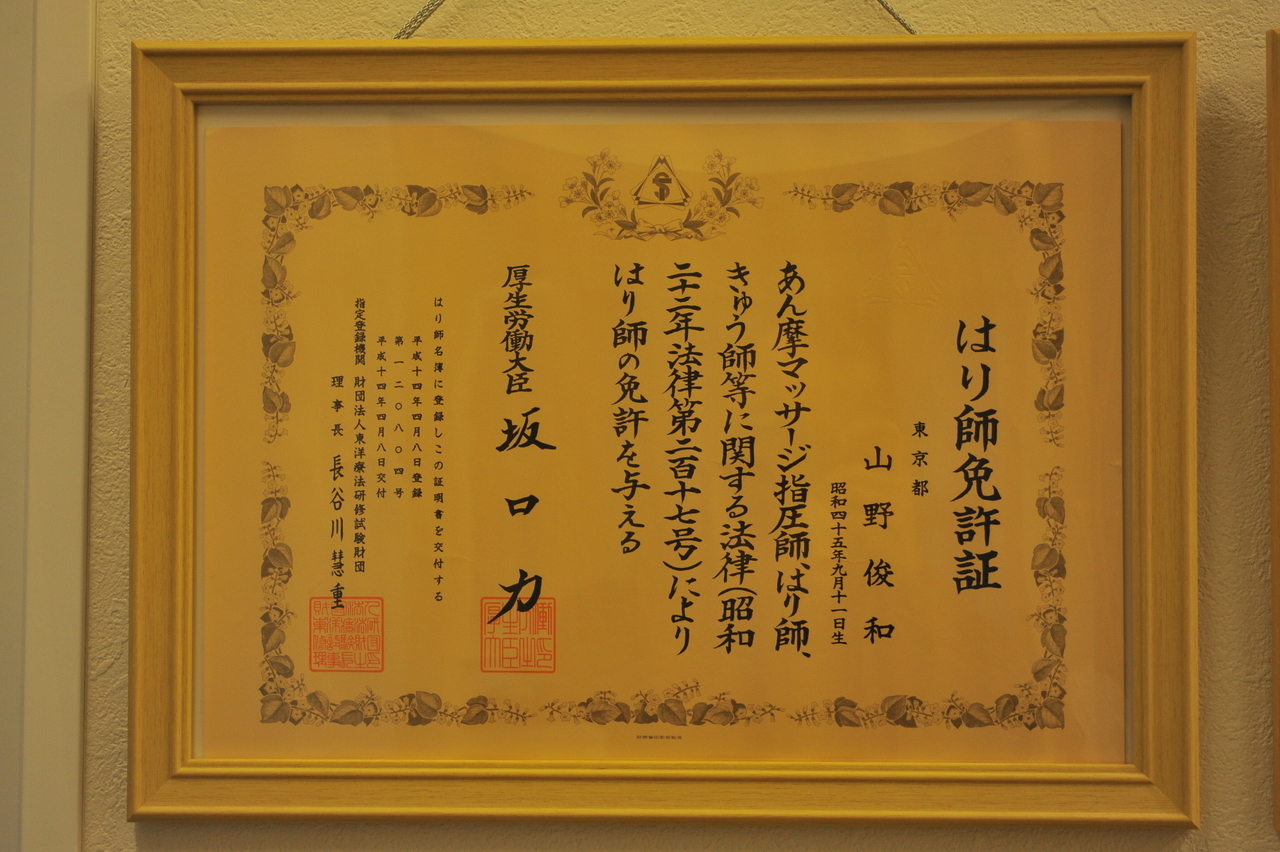 はり師免許証
東京都
山野俊和
昭和四十五年九月十一日生
あん摩マッサージ指圧師、はり師、
きゅう師等に関する法律(昭和
二十二年法律第二百十七号)により
はり師の免許を与える
厚生労働大臣 坂口力
はり師名簿に登録しこの証明書を交付する
平成十四年四月八日登録
第一二〇八〇四号
平成十四年四月八日交付
指定登録機関 財団法人東洋療法研修試験財団
理事長 長谷川慧重